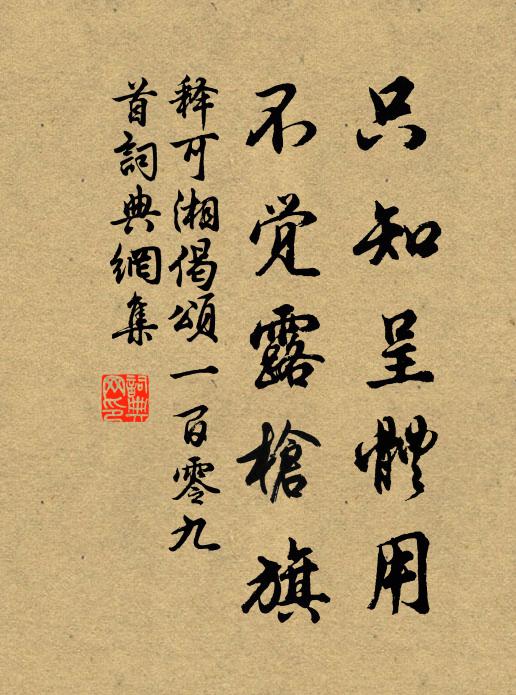 只知呈體用
不覺露槍旗
释可湘偈頌一百零九
首詞典網集
詞典網印